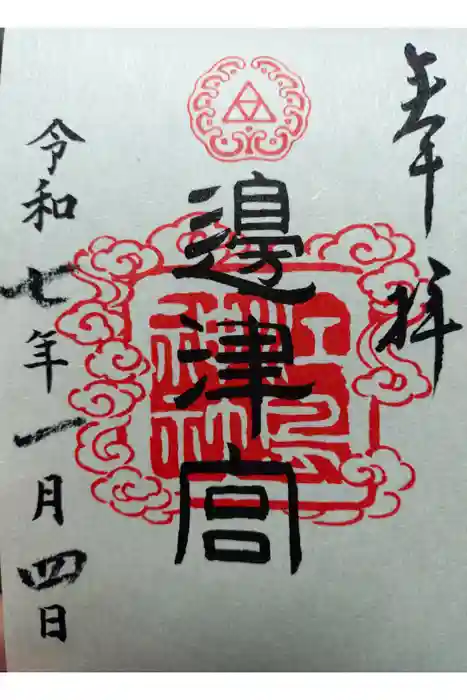 奉拝
邊津宮
令和七年一月四日